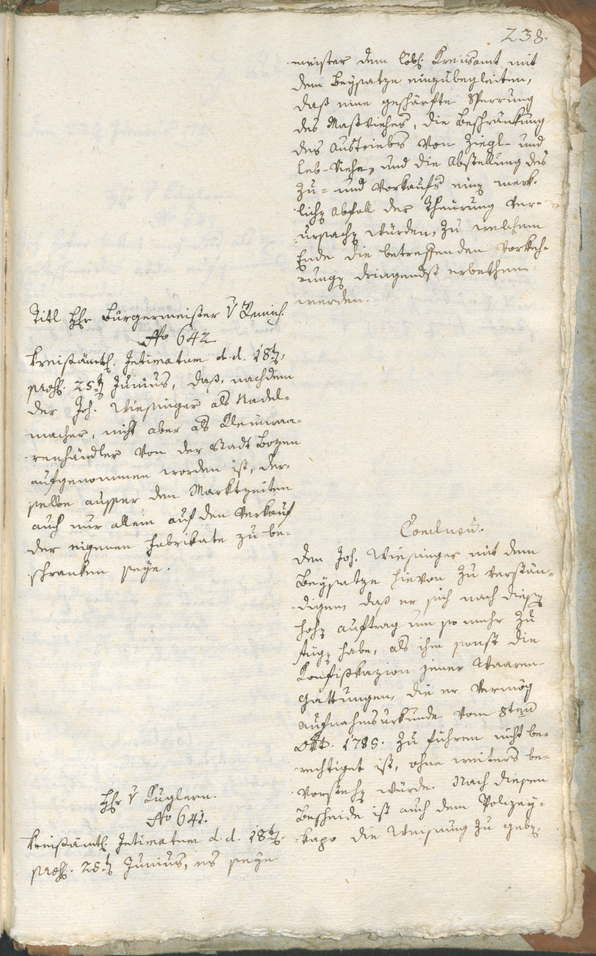 238.
meister dem löbl. Kreisamt mit
dem Beysatze einzubegleiten,
daß eine geschärfte Sperrung
des Mastviehes, die Beschränkung
des Austriebes von Ziegl- und
leb-Viehe, und die Abstellung des
Zu- und Vorkaufs einen merk-
lichen Abfall der Theurung ver-
ursachen würden, zu welchem
Ende die betreffenden Vorkeh-
rungen dringendst erbethen
werden.
Titl. Hr. Bürgermeister v
No 642
Kreisämtl. Intimatum d. d. 18ten,
praes. 25ten Junius, daß, nachdem
der Joh. Wiesinger als Nadel-
macher, nicht aber als Kleinwaa-
renhändler von der Stadt Bozen
aufgenommen worden ist, der-
selbe ausser den Marktzeiten
auch nur allein auf den Verkauf
der eigenen Fabrikate zu be-
schranken seye.
Conclusum.
Dem Joh. Wiesinger mit dem
Beysatze hievon zu verstän-
digen, daß er sich nach diesem
hohen Auftrag um so mehr zu
fügen habe, als ihm sonst die
Konfiskazion jener Waaren-
Gattungen, die er vermög
Aufnahmsurkunde vom 8ten
Okt. 1785. zu führen nicht be-
rechtiget ist, ohne weiters be-
vorstehen würde. Nach diesem
Bescheide ist auch dem Polizey-
kapo die Weisung zu geben.
Hr. v Kuglern.
No 641.
Kreisämtl. Intimatum d. d. 18ten,
praes. 25ten Junius, es seye